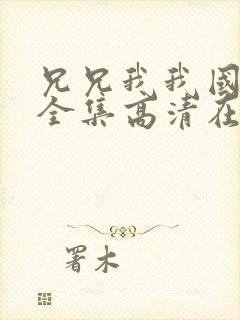 兄兄我我國
全集高清在
署木